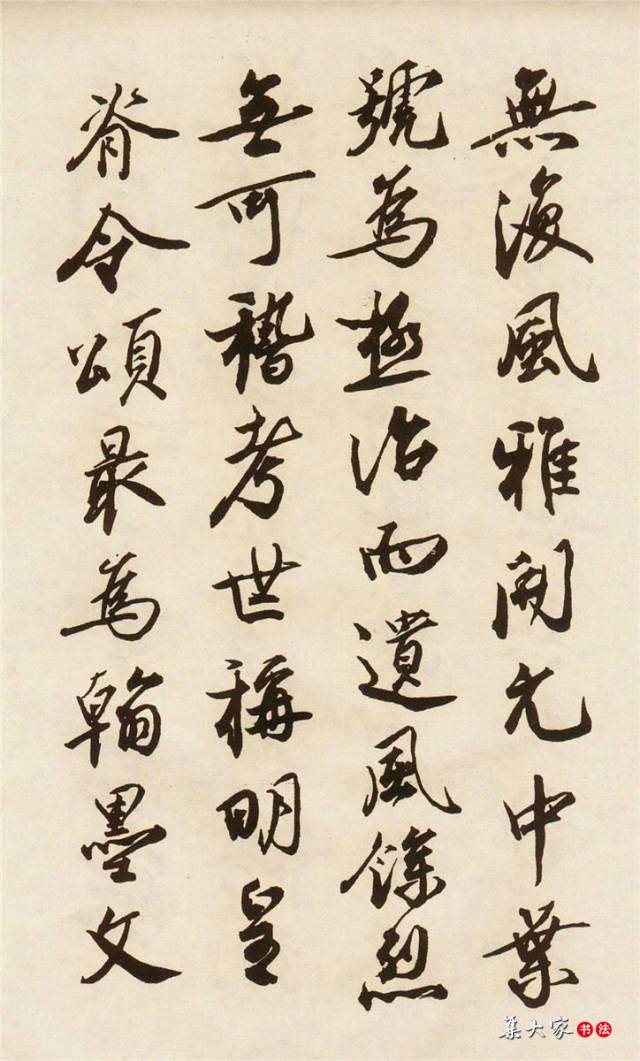 無復風雅開元中葉
號為極治而遺風餘烈
無可稽考世稱明皇
脊令頌最為翰墨文
集大家书法